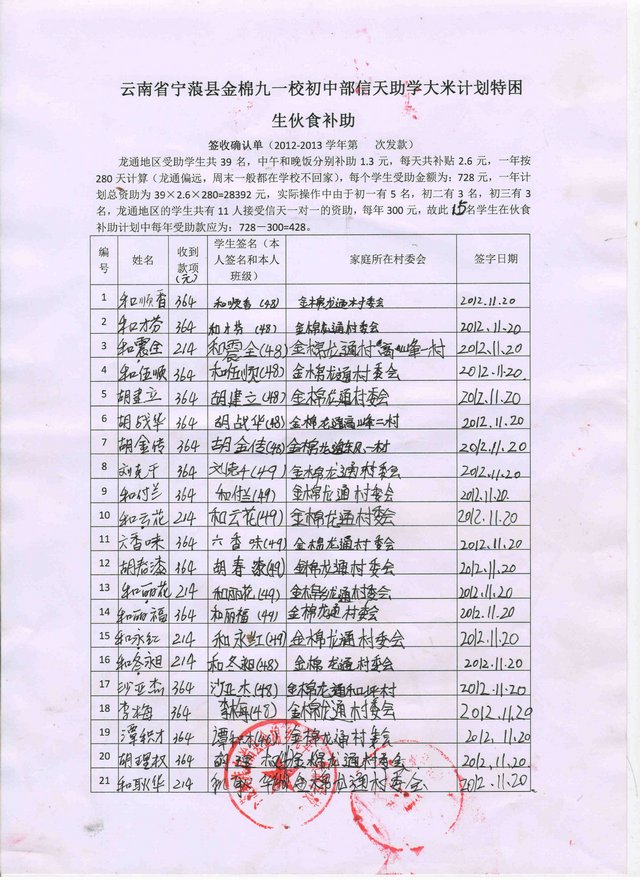 云南省宁蒗县金棉九一校初中部信天助学大米计划特困
生伙食补助
签收确认单（2012-2013 学年第 次发款）
龙通地区受助学生共 39 名，中午和晚饭分别补助 1.3 元，每天共补贴 2.6 元，一年按
280 天计算（龙通偏远，周末一般都在学校不回家），每个学生受助金额为：728 元，一年计
划总资助为 39×2.6×280=28392 元，实际操作中由于初一有 5 名，初二有 3 名，初三有 3
名，龙通地区的学生共有 11 人接受信天一对一的资助，每年 300 元，故此 15名学生在伙食
补助计划中每年受助款应为：728－300=428。
编号 姓名 收到款项(元) 学生签名（本人签名和本人班级） 家庭所在村委会 签字日期
1 和顺香 364 和顺香 (48) 金棉龙通村委会 2012.11.20
2 和才芬 364 和才芬 (48) 金棉龙通村委会 2012.11.20
3 和震全 214 和震全(48) 金棉龙通村高峰一村 2012.11.20
4 和伍顺 364 和伍顺(48) 金棉龙通村委会 2012.11.20
5 胡建立 364 胡建立(48) 金棉龙通村委会 2012.11.20
6 胡战华 364 胡战华(48) 金棉龙通高峰二村 2012.11.20
7 胡金传 364 胡金传(48) 金棉龙通东风一村 2012.11.20
8 刘克千 364 刘克千(49) 金棉龙通村委会 2012.11.20
9 和付兰 364 和付兰(49) 金棉龙通村委会 2012.11.20
10 和云花 214 和云花(49) 金棉龙通村委会 2012.11.20
11 六香味 364 六香味(49) 金棉龙通村委会 2012.11.20
12 胡春漆 364 胡春漆(49) 金棉龙通村委会 2012.11.20
13 和丽花 214 和丽花(49) 金棉乡龙通村委会 2012.11.20
14 和丽福 364 和丽福(49) 金棉龙通村委会 2012.11.20
15 和永红 214 和永红(49) 金棉龙通村委会 2012.11.20
16 和冬昶 214 和冬昶(48) 金棉龙通村委会 2012.11.20
17 沙亚杰 364 沙亚杰(48) 金棉龙通和坪村 2012.11.20
18 李梅 364 李梅(48) 金棉龙通村委会 2012.11.20
19 潭积才 364 潭积才 金棉龙通村委会 2012.11.20
20 胡理权 364 胡理权 金棉龙通村委会 2012.11.20
21 和耿华 214 和 华 金棉龙通村委会 2012.11.20